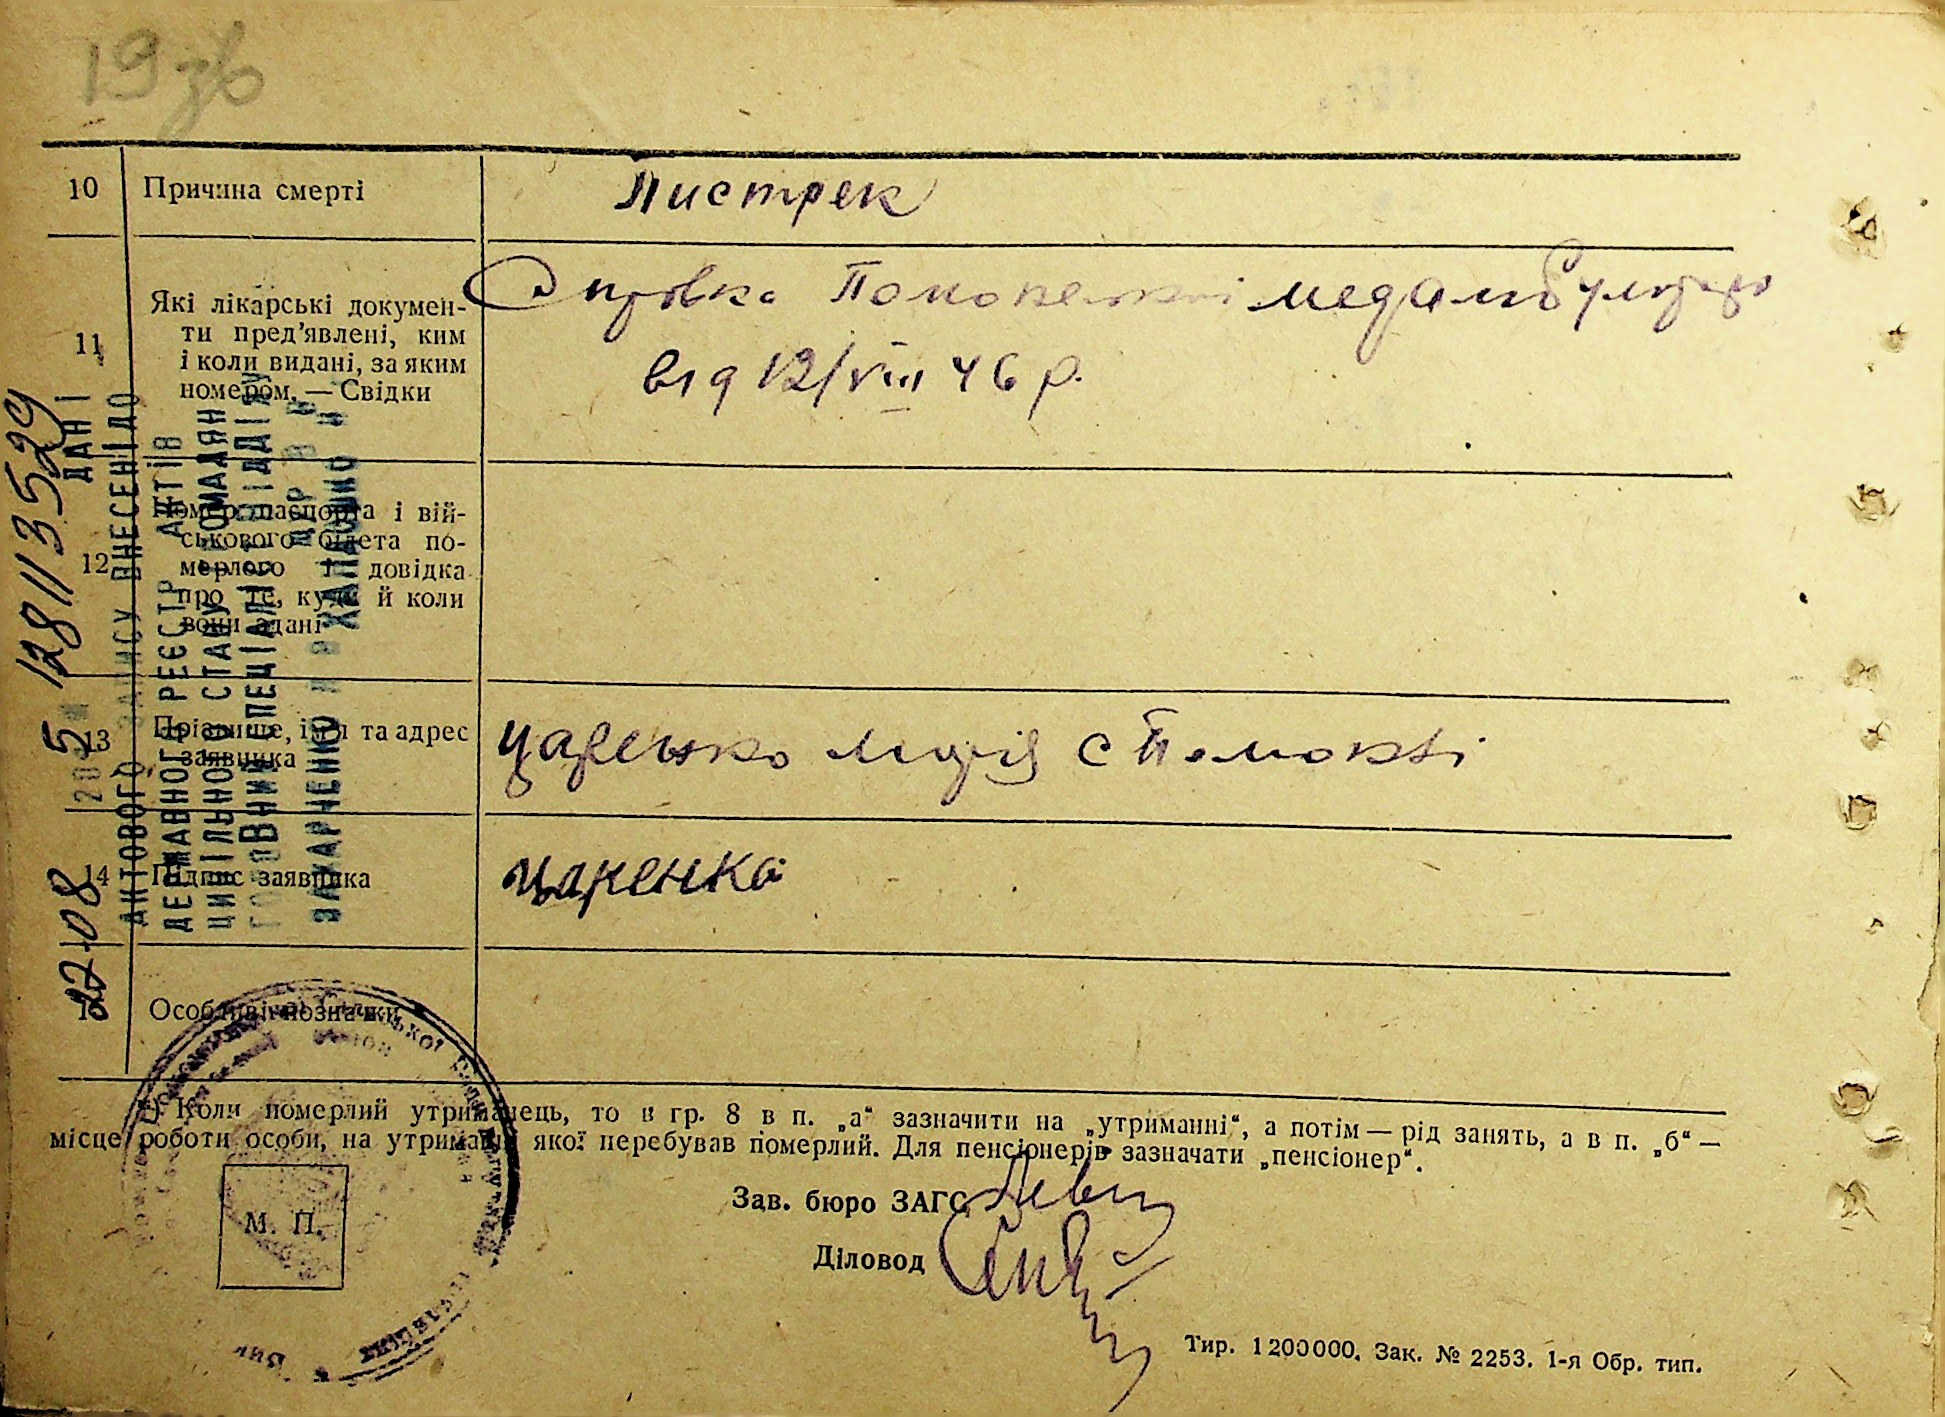 19 зв
10 Причина смерті
Пистрек
11 Які лікарські докумен-
ти пред'явлені, ким
і коли видані, за яким
номером. — Свідки
Справка медамбулаторі
від 12/VIII 46 р.
12 Номер паспорта і вій-
ськового білета по-
мерлого і довідка
про те, куди й коли
вони здані
13 Прізвище, ім'я та адрес
заявника
Царенко с
14 Підпис заявника
Царенко
15 Особливі позначки
1) Коли померлий утриманець, то в гр. 8 в п. „а“ зазначити на „утриманні“, а потім — рід занять, а в п. „б“ —
місце роботи особи, на утриманні якої перебував померлий. Для пенсіонерів зазначати „пенсіонер“.
М. П.
Зав. бюро ЗАГС
Діловод
Тир. 1200000. Зак. № 2253. 1-я Обр. тип.
12811135
ДАНІ
АКТОВОГО ЗАПИСУ ВНЕСЕНІ ДО
ДЕРЖАВНОГО РЕЄСТР АКТІВ
ЦИВІЛЬНОГО СТАНУ ГРОМАДЯН
ГОЛОВНИЙ СПЕЦІАЛІСТ ВІДДІЛУ
ДРАЦС
ЗАХАРЧЕНКО
22 08